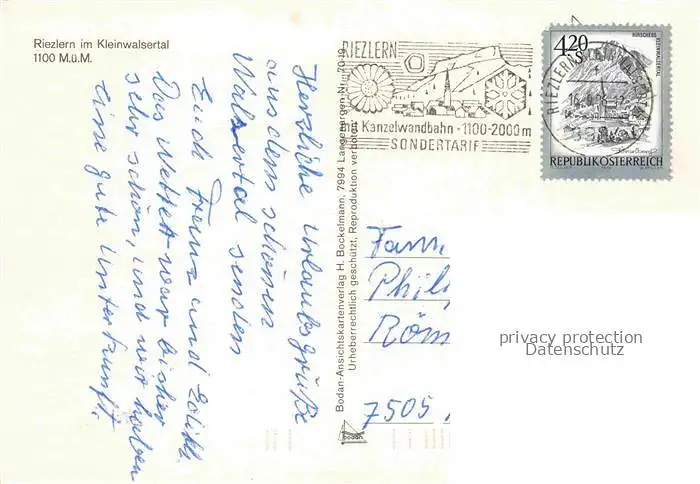 Riezlern im Kleinwalsertal
1100 M.ü.M.
Herzliche Urlaubsgrüße
aus dem schönen
Walsertal senden
Euch Franz und Edith.
Das Wetter war bisher
sehr schön, und wir haben
eine gute Unterkunft.
Bodan-Ansichtskartenverlag H. Bockelmann, 7994 Langenargen Nr.
Urheberrechtlich geschützt, Reproduktion verboten
bodan
RIEZLERN
mit Kanzelwandbahn · 1100-2000 m
SONDERTARIF
RIEZLERN
4.20
S
HIRSCHEGG
KLEINWALSERTAL
REPUBLIK ÖSTERREICH
Fam.
Phil
Röm
7505
privacy protection
Datenschutz